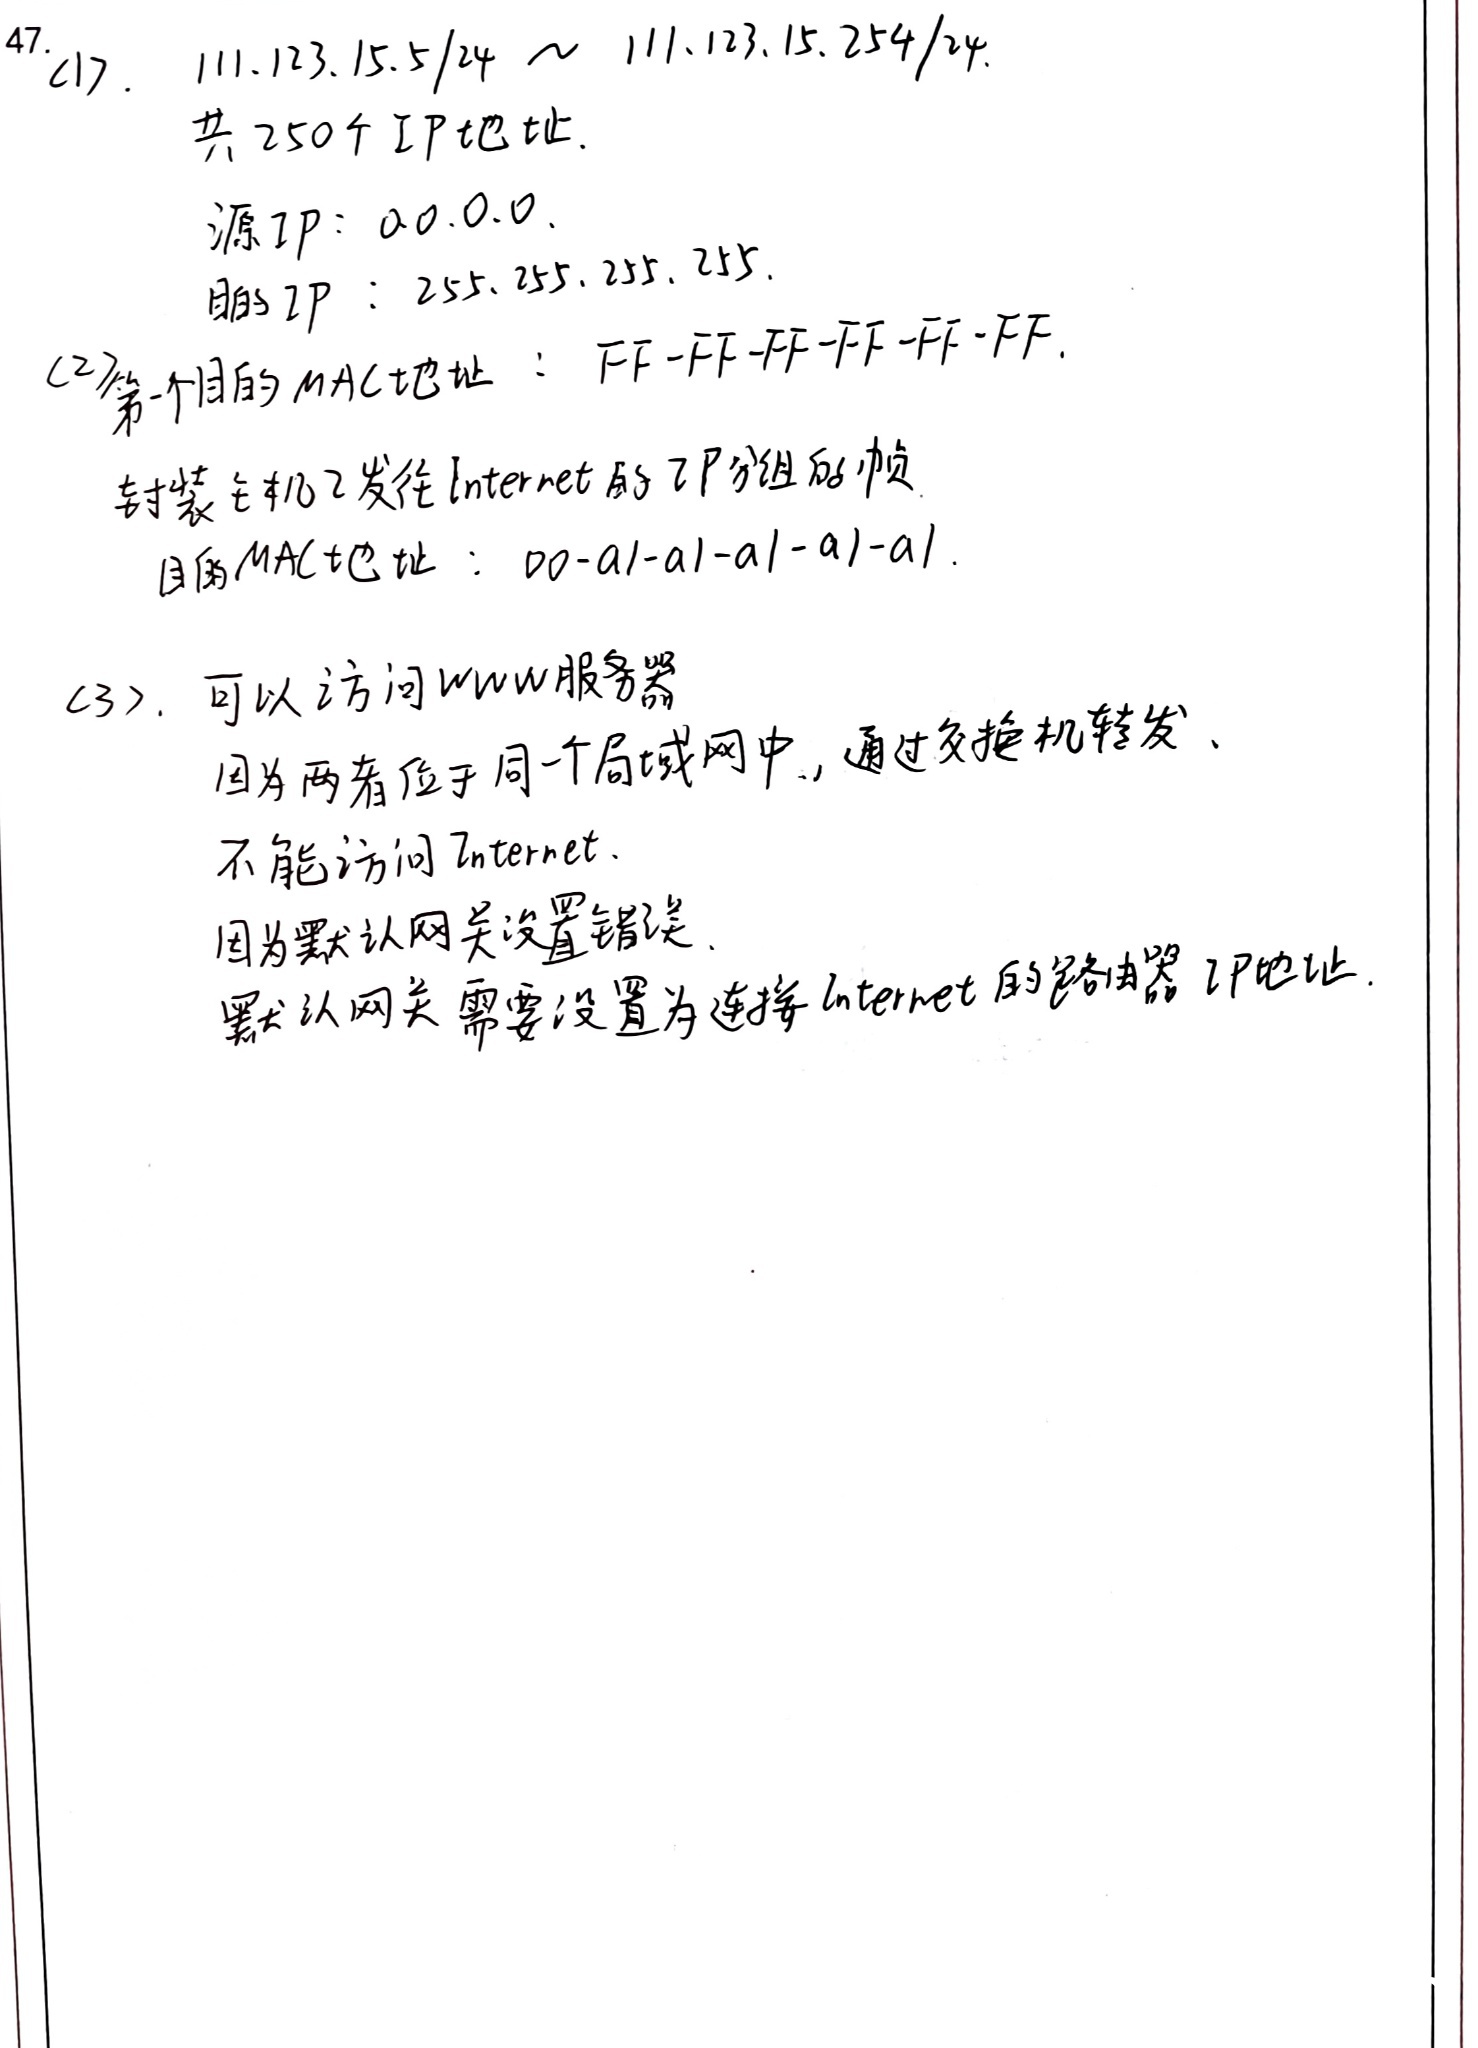 47.
(1). 111.123.15.5/24 ~ 111.123.15.254/24.
共250个IP地址.
源IP: 0.0.0.0.
目的IP : 255.255.255.255.
(2) 第一个目的MAC地址 : FF-FF-FF-FF-FF-FF.
封装主机2发往Internet的IP分组的帧.
目的MAC地址 : 00-a1-a1-a1-a1-a1.
(3). 可以访问WWW服务器
因为两者位于同一个局域网中, 通过交换机转发、
不能访问Internet.
因为默认网关设置错误.
默认网关需要设置为连接Internet的路由器IP地址.